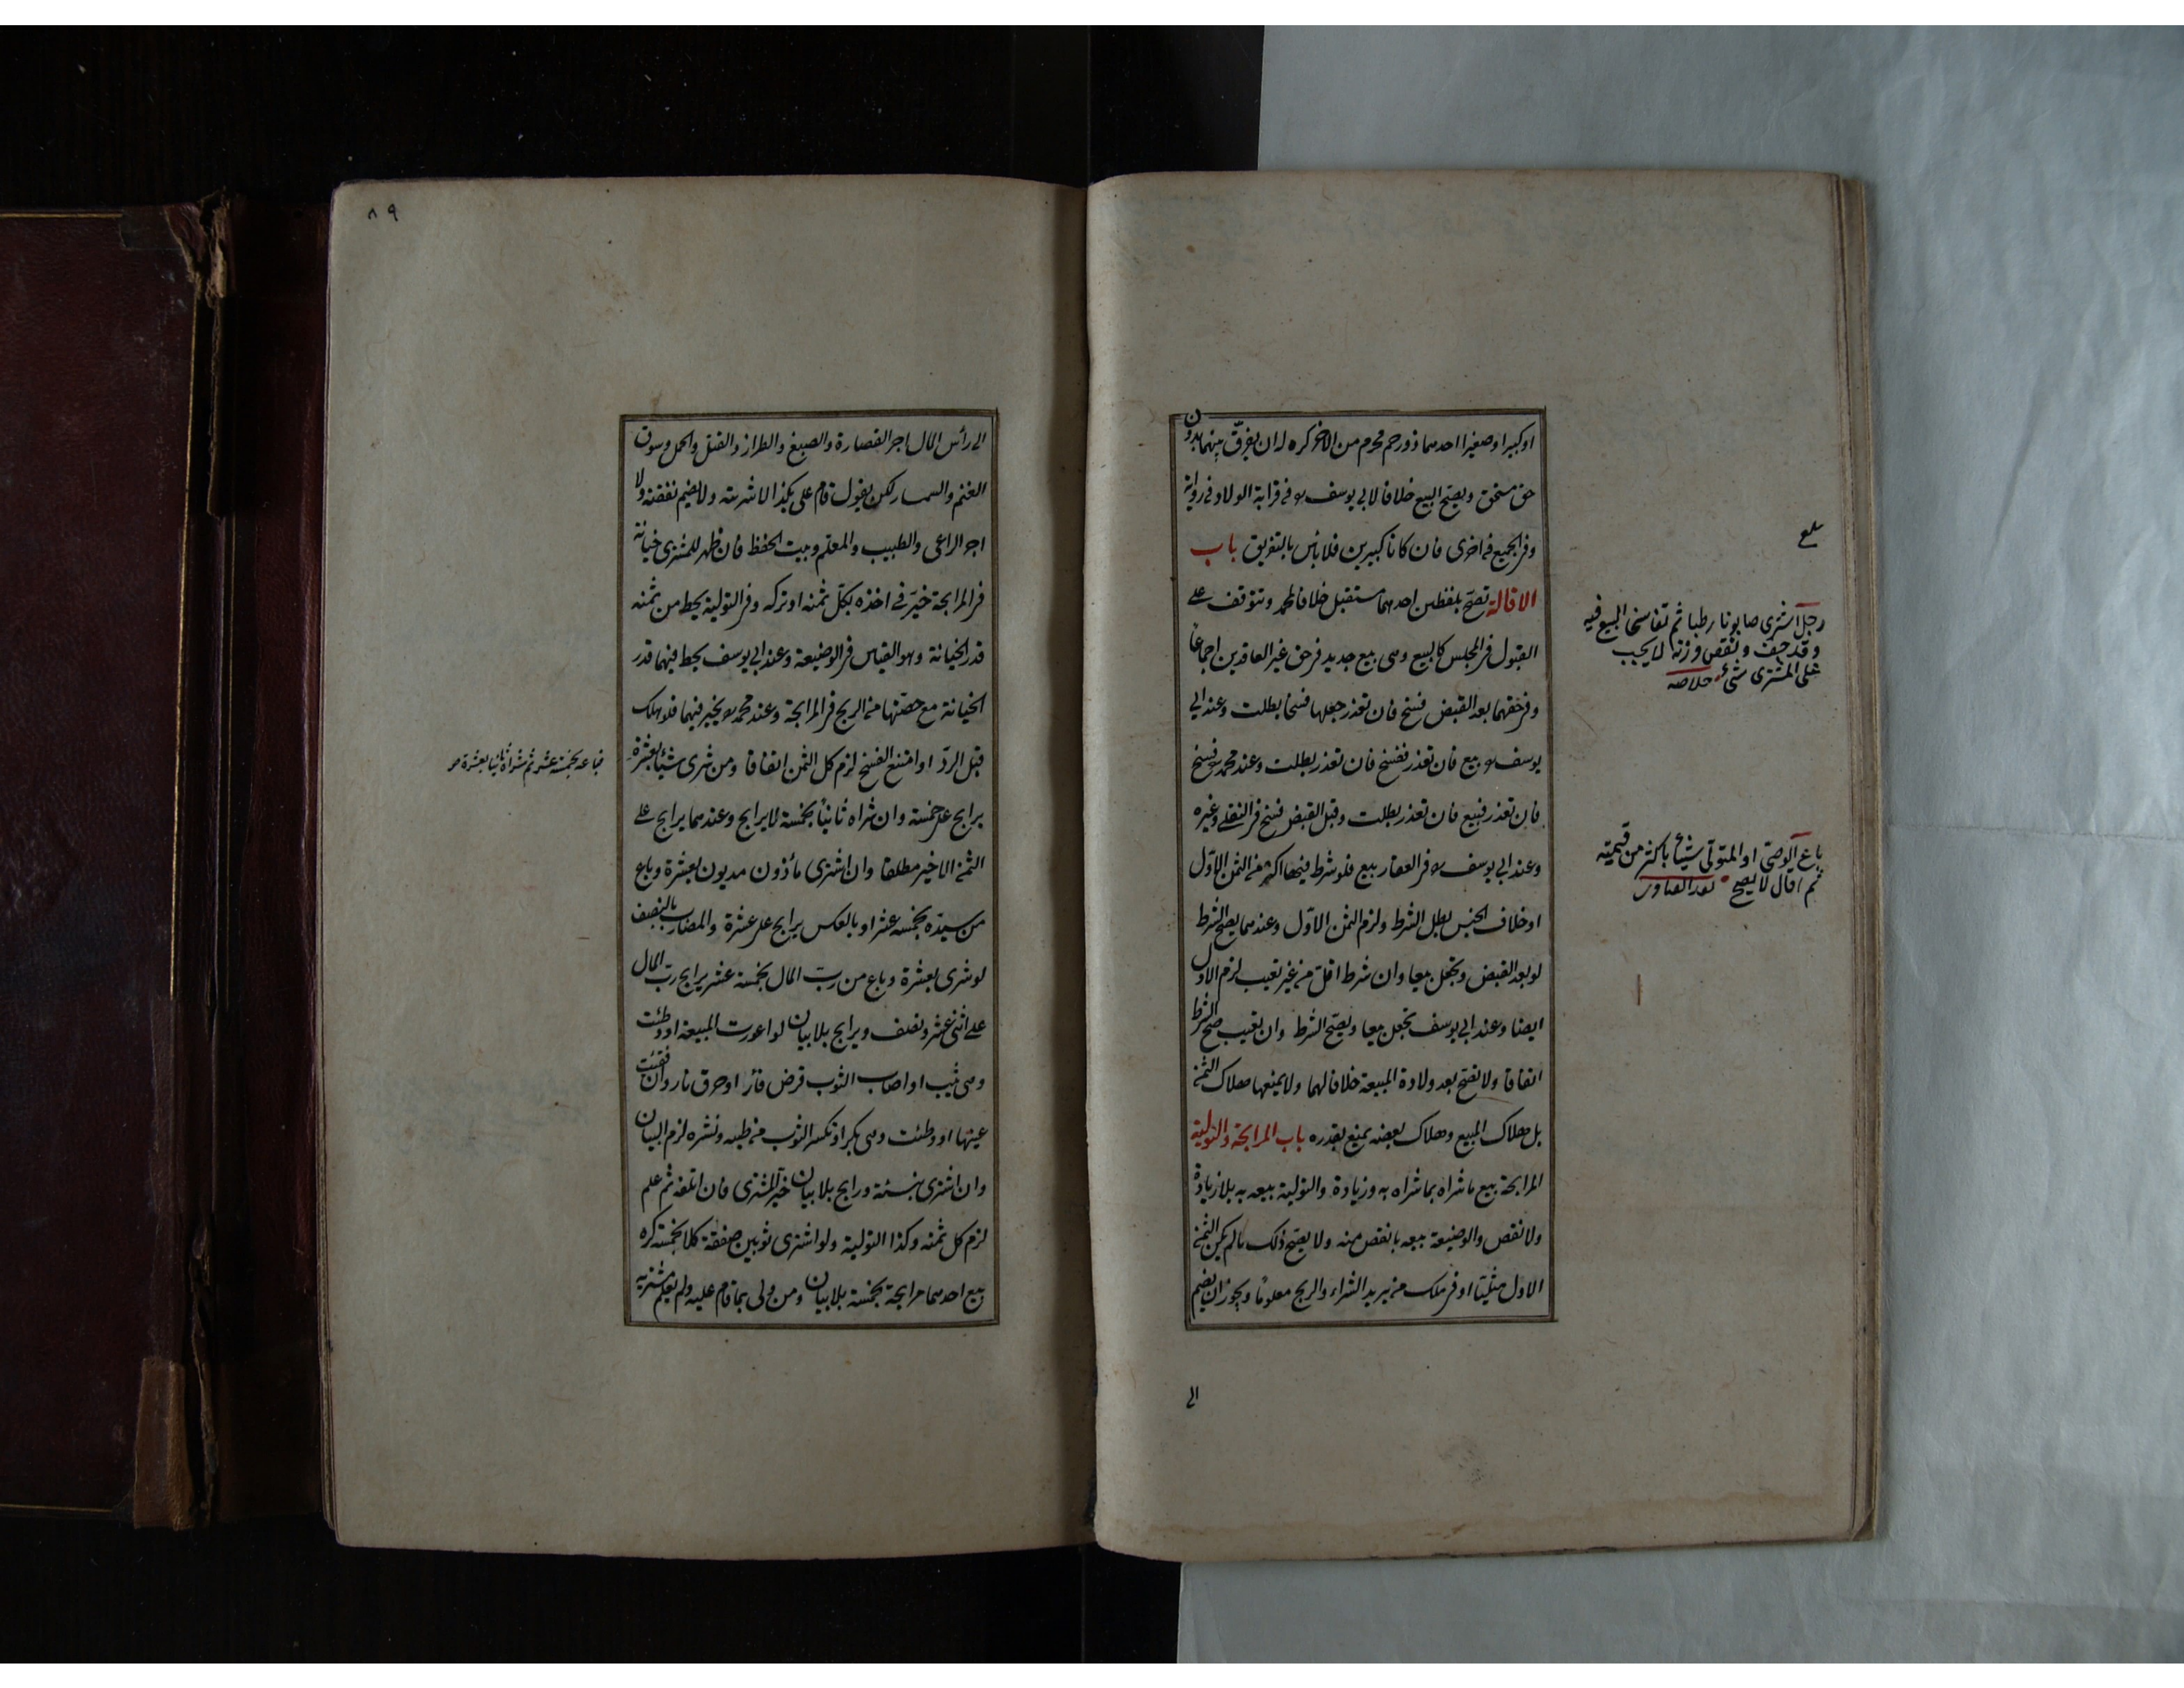 او كبيرا وصغيرا احدهما ذو رحم محرم من الآخر كره له ان يفرّق بينهما بدون
حق مستحق ويصحّ البيع خلافا لابي يوسف رح في قرابة الولاد وفي رواية
وفي الجميع في اخرى فان كانا كبيرين فلا بأس بالتفريق باب
الاقالة تصحّ بلفظين احدهما مستقبل خلافا لمحمد وتتوقف على
القبول في المجلس كالبيع وهى بيع جديد في حق غير العاقدين اجماعا
وفي حقهما بعد القبض فسخ فان تعذر جعلها فسخا بطلت وعند ابي
يوسف رح بيع فان تعذر ففسخ فان تعذر بطلت وعند محمد رح فسخ
فان تعذر فبيع فان تعذر بطلت وقبل القبض فسخ في النقلي وغيره
وعند ابي يوسف رح في العقار بيع فلو شرط فيها اكثر من الثمن الاوّل
او خلاف الجنس بطل الشرط ولزم الثمن الاوّل وعندهما يصح الشرط
لو بعد القبض وتجعل بيعا وان شرط اقلّ من غير تعيب لزم الاول
ايضا وعند ابي يوسف تجعل بيعا ويصحّ الشرط وان تعيب صح الشرط
اتفاقا ولا تصح بعد ولادة المبيعة خلافا لهما ولا يمنعها هلاك الثمن
بل هلاك المبيع وهلاك بعضه يمنع بقدره باب المرابحة والتولية
المرابحة بيع ما شراه بما شراه به وزيادة والتولية بيعه به بلا زيادة
ولا نقص والوضيعة بيعه بانقص منه ولا يصحّ ذلك ما لم يكن الثمن
الاول مثليّا او في ملك من يريد الشراء والربح معلوما ويجوز ان يضم
الى
رجل اشترى صابونا رطبا ثم تفاسخا البيع فيه
وقد جف ونقص وزنه لا يجب
على المشترى شئ خلاصه
باع الوصى او المتولى شيئا باكثر من قيمته
ثم اقال لا يصح
٨٩
الى رأس المال اجر القصارة والصبغ والطراز والفتل والحمل وسوق
الغنم والسمسار لكن يقول قام على بكذا لا اشتريته ولا يضم نفقته ولا
اجر الراعى والطبيب والمعلّم وبيت الحفظ فان ظهر للمشترى خيانة
في المرابحة خيّر في اخذه بكلّ ثمنه او تركه وفي التولية يحط من ثمنه
قدر الخيانة وهو القياس في الوضيعة وعند ابي يوسف يحط فيهما قدر
الخيانة مع حصتها من الربح في المرابحة وعند محمد رح يخير فيهما فلو هلك
قبل الردّ او امتنع الفسخ لزم كل الثمن اتفاقا ومن شرى شيئا بعشرة
فباعه بخمسة عشر ثم شراه ثانيا بعشرة
يرابح على خمسة وان شراه ثانيا بخمسة لا يرابح وعندهما يرابح على
الثمن الاخير مطلقا وان اشترى مأذون مديون بعشرة وباع
من سيّده بخمسة عشر او بالعكس يرابح على عشرة والمضارب بالنصف
لو شرى بعشرة وباع من ربّ المال بخمسة عشر يرابح ربّ المال
على اثنى عشر ونصف ويرابح بلا بيان لو اعورت المبيعة او وطئت
وهى ثيب او اصاب الثوب قرض فأر او حرق نار وان فقئت
عينها او وطئت وهى بكر او تكسر الثوب من طيه ونشره لزم البيان
وان اشترى بنسئة ورابح بلا بيان خيّر المشترى فان اتلفه ثم علم
لزم كل ثمنه وكذا التولية ولو اشترى ثوبين صفقة كلا بخمسة كره
بيع احدهما مرابحة بخمسة بلا بيان ومن ولى بما قام عليه ولم يعلم مشتريه